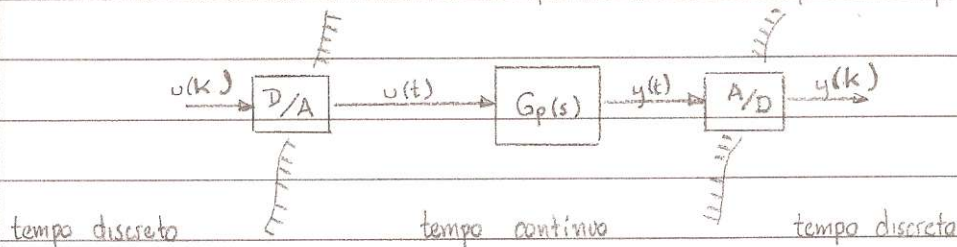 u(k) D/A u(t) Gp(s) y(t) A/D y(k)
tempo discreto tempo contínuo tempo discreto